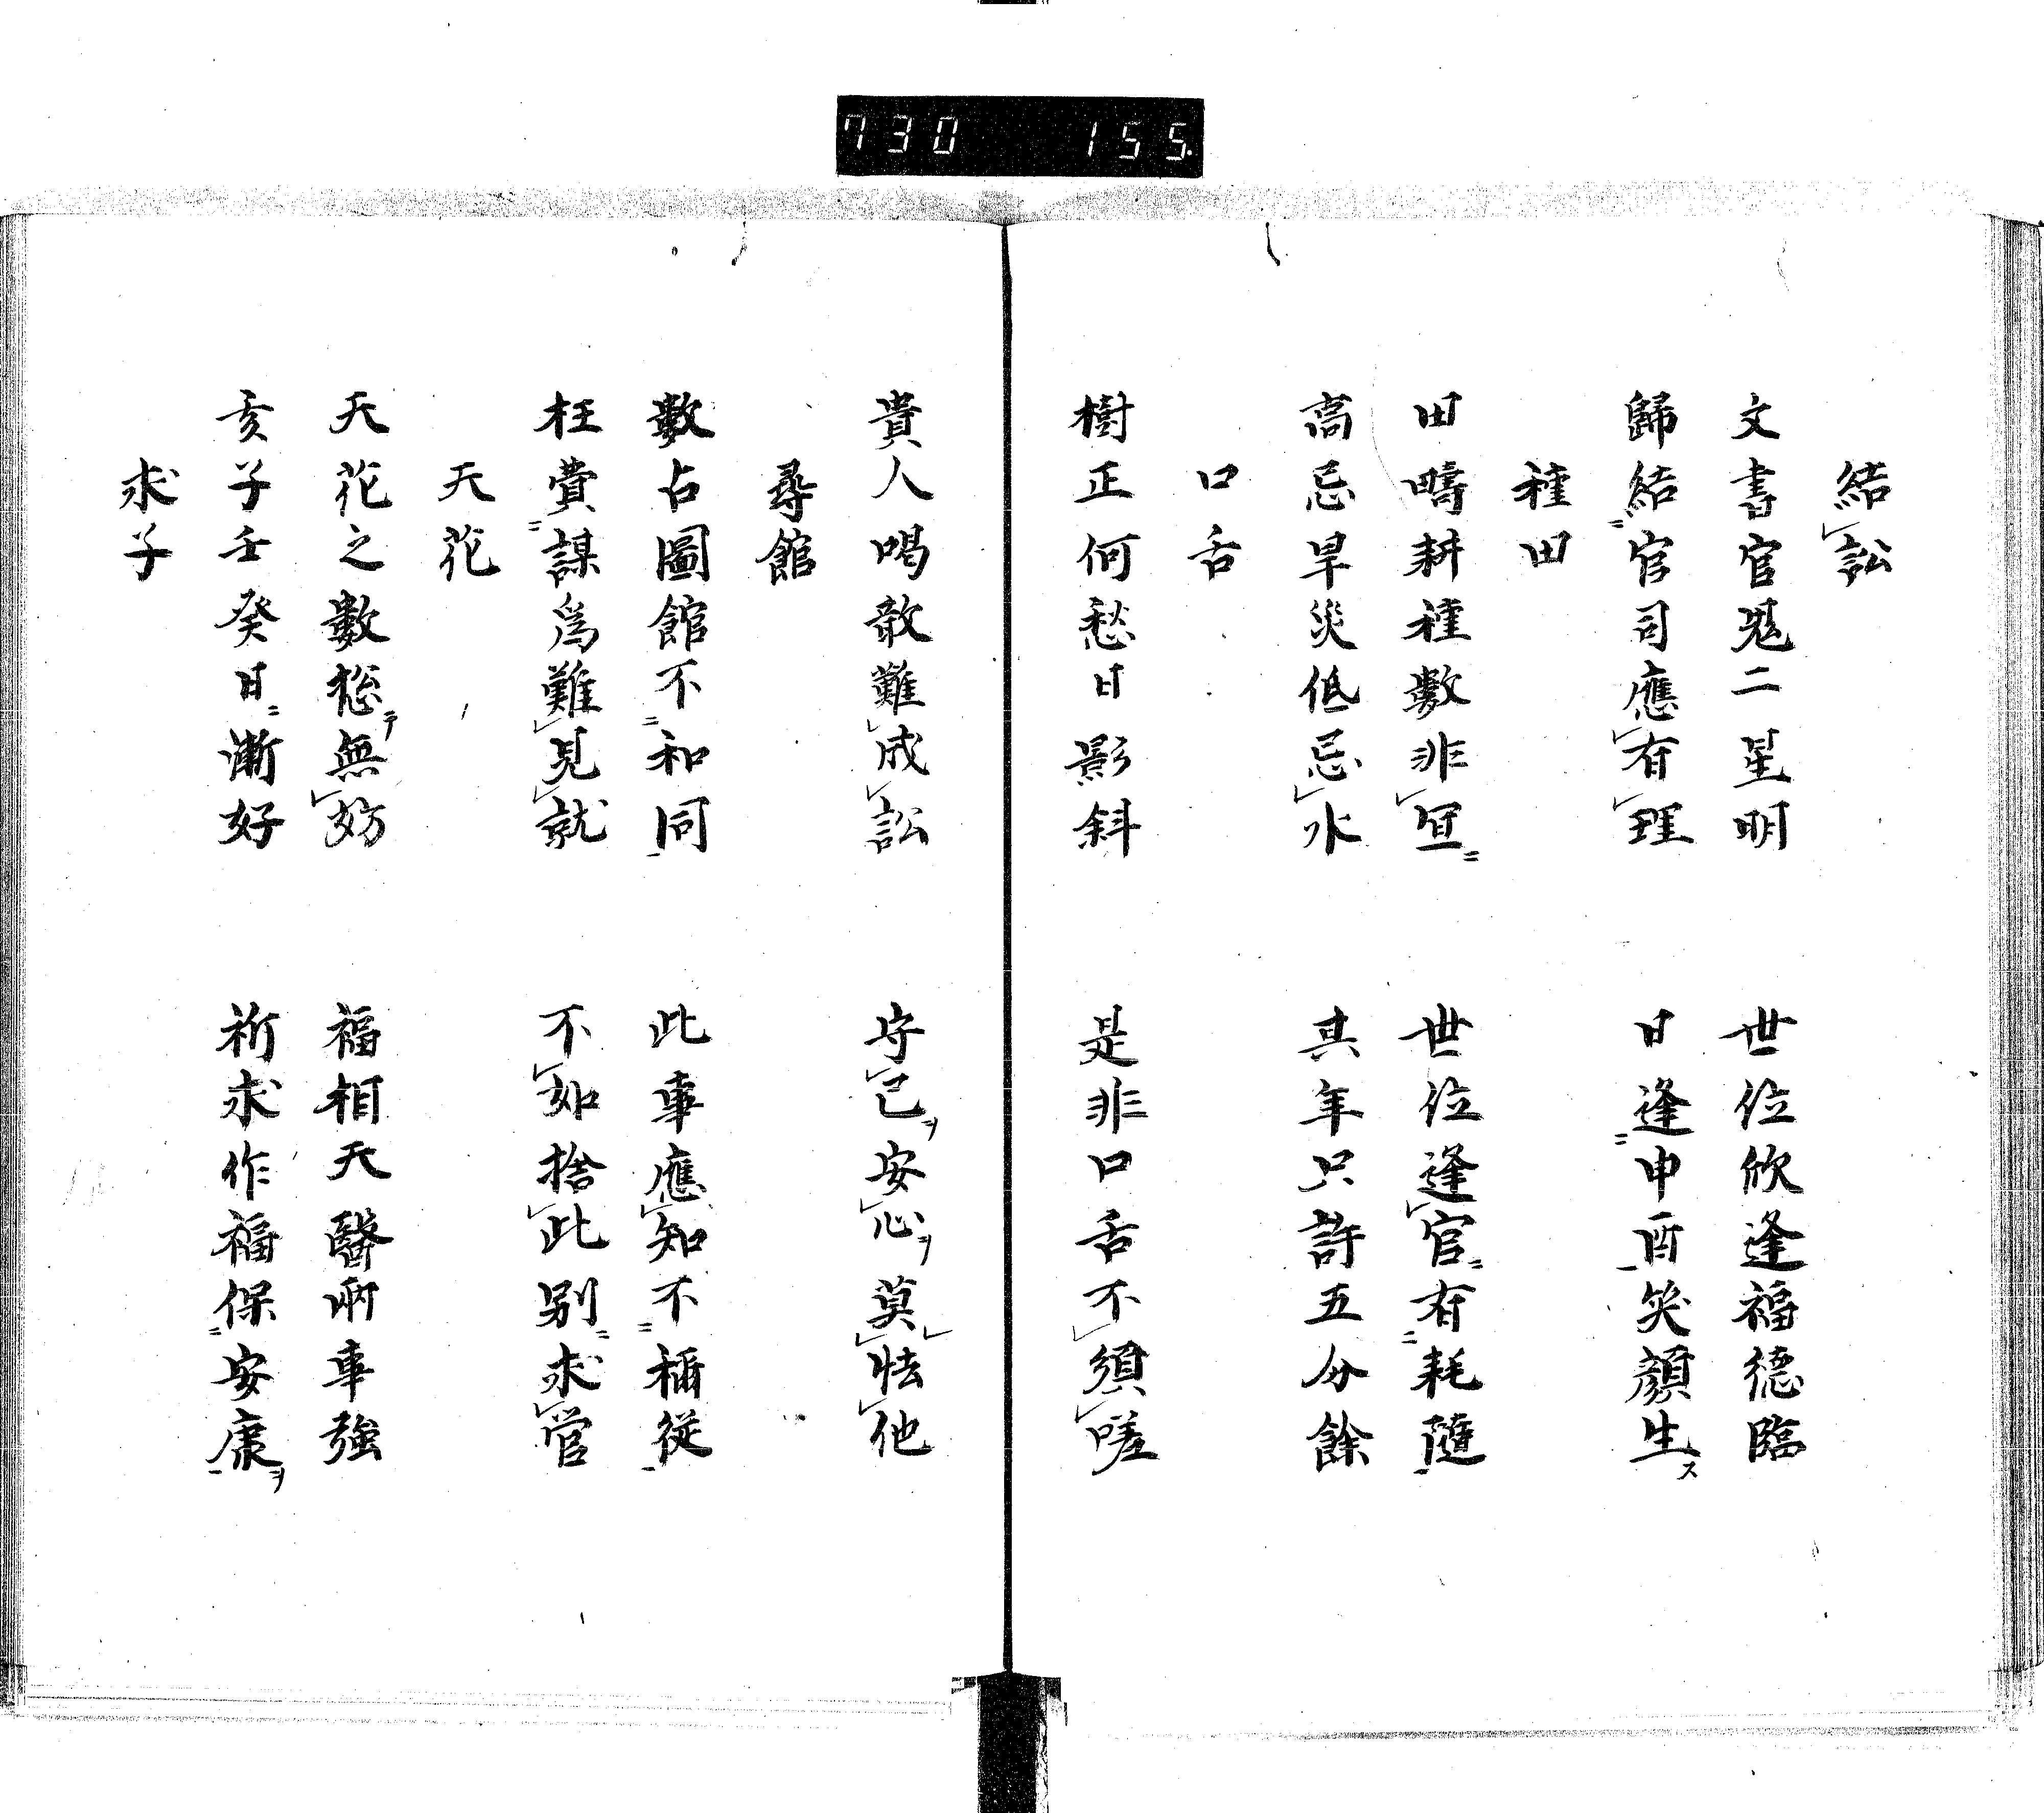 730 155
結訟
文書官鬼二星明 世位欣逢福德臨
歸結官司應有理 日逢申酉笑顏生ス
種田
田疇耕種數非宜 世位逢官有耗隨
高忌旱災低忌水 其年只許五分餘
口舌
樹正何愁日影斜 是非口舌不須嗟
貴人喝散難成訟 守己ヲ安心ヲ莫怯他
尋館
數占圖館不和同 此事應知不稱從
枉費謀為難見就 不如捨此別求營
天花
天花之數摠テ無妨 福相天醫兩事強
亥子壬癸日漸好 祈求作福保安康ヲ
求子